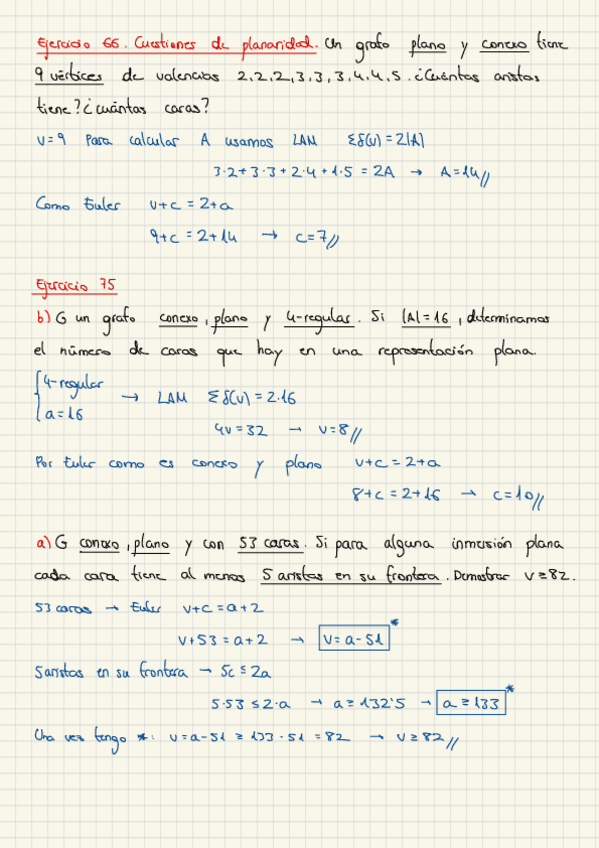 Ejercicio 66. Cuestiones de planaridad. Un grafo plano y conexo tiene
9 vértices de valencias 2,2,2,3,3,3,4,4,5. ¿Cuántas aristas
tiene? ¿cuántas caras?
v=9 Para calcular A usamos LAM Σδ(v) = 2|A|
3·2+3·3+2·4+1·5 = 2A → A=14//
Como Euler v+c = 2+a
9+c = 2+14 → c=7//
Ejercicio 75
b) G un grafo conexo, plano y 4-regular. Si |A|=16, determinamos
el número de caras que hay en una representación plana.
{4-regular
a=16 → LAM Σδ(v) = 2·16
4v=32 → v=8//
Por Euler como es conexo y plano v+c = 2+a
8+c = 2+16 → c=10//
a) G conexo, plano y con 53 caras. Si para alguna inmersión plana
cada cara tiene al menos 5 aristas en su frontera. Demostrar v≥82.
53 caras → Euler v+c = a+2
v+53 = a+2 → v= a-51 *
5aristas en su frontera → 5c ≤ 2a
5·53 ≤ 2·a → a ≥ 132'5 → a ≥ 133 *
Una vez tengo *: v = a-51 ≥ 133-51 = 82 → v ≥ 82//